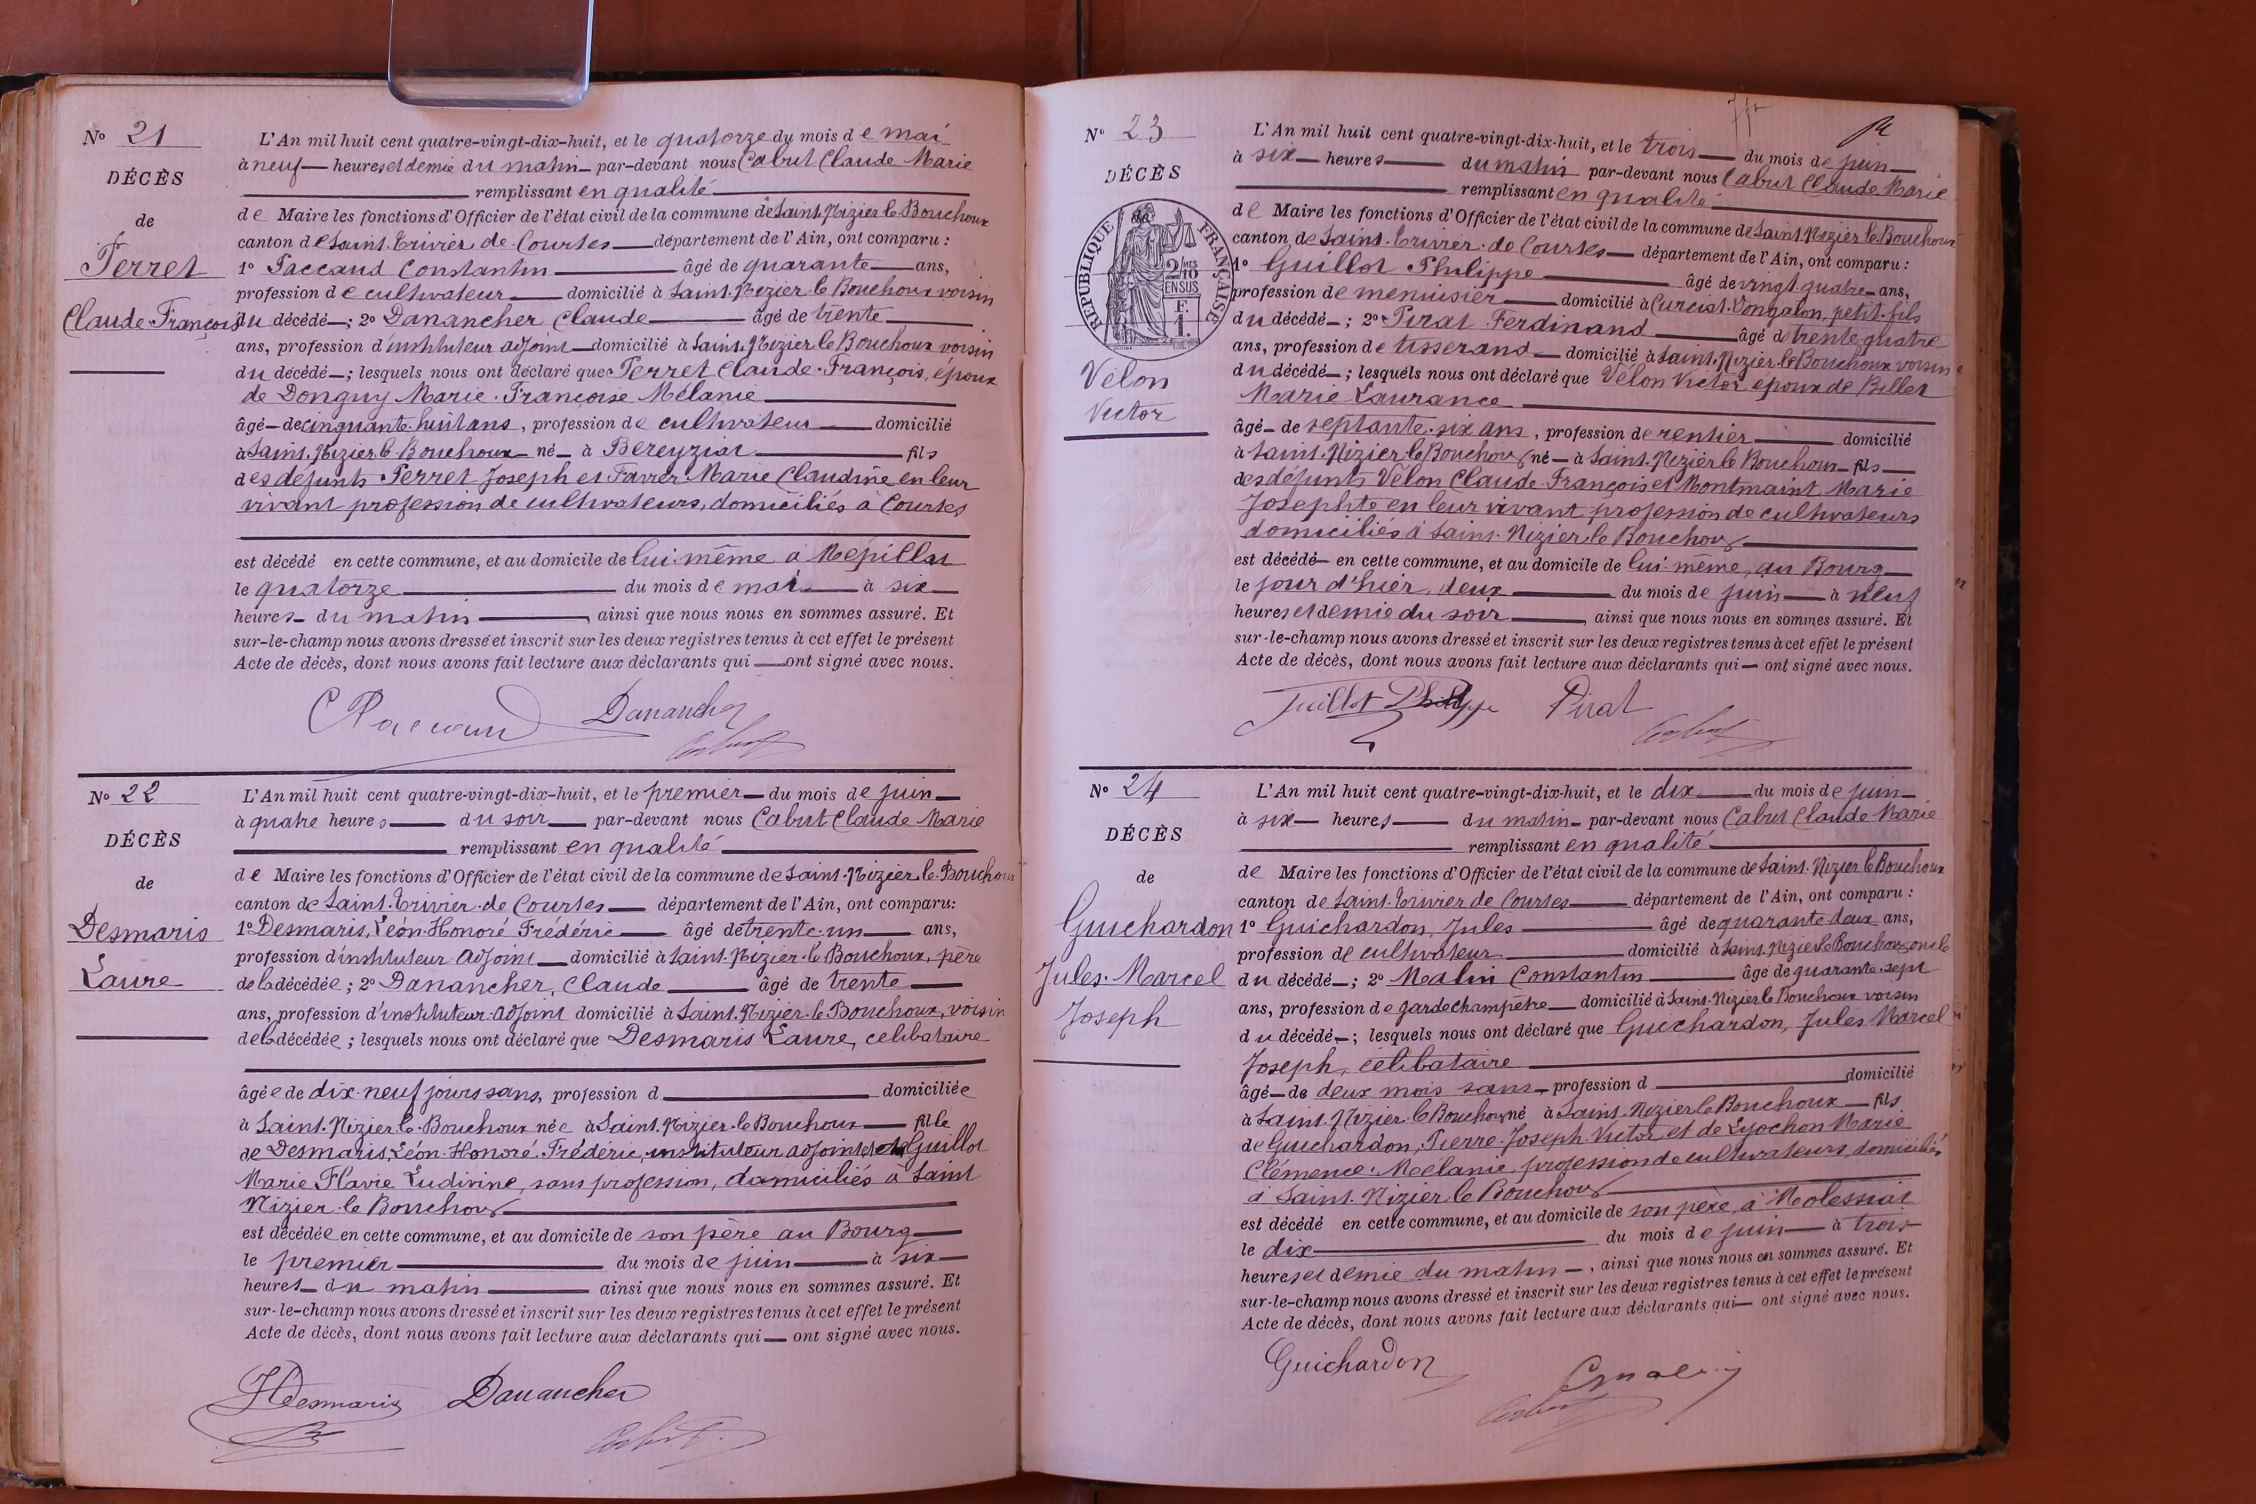 N° 21
DÉCÈS
de
Perret
Claude François
L'An mil huit cent quatre-vingt-dix-huit, et le quatorze du mois de mai
à neuf heures et demie du matin par-devant nous Cabut Claude Marie
remplissant en qualité
de Maire les fonctions d'Officier de l'état civil de la commune de Saint-Nizier le Bouchoux
canton de Saint-Trivier-de-Courtes département de l'Ain, ont comparu :
1° Paccaud Constantin âgé de quarante ans,
profession de cultivateur domicilié à Saint-Nizier le Bouchoux voisin
du décédé ; 2° Danancher Claude âgé de trente
ans, profession d'instituteur adjoint domicilié à Saint-Nizier le Bouchoux voisin
du décédé ; lesquels nous ont déclaré que Perret Claude-François, époux
de Donguy Marie-Françoise Mélanie
âgé de cinquante-huit ans, profession de cultivateur domicilié
à Saint-Nizier le Bouchoux né à Béréyziat fils
des défunts Perret Joseph et Favrer Marie Claudine en leur
vivant profession de cultivateurs, domiciliés à Courtes
est décédé en cette commune, et au domicile de lui-même à Mépillat
le quatorze du mois de mai à six
heures du matin ainsi que nous nous en sommes assuré. Et
sur-le-champ nous avons dressé et inscrit sur les deux registres tenus à cet effet le présent
Acte de décès, dont nous avons fait lecture aux déclarants qui ont signé avec nous.
C Paccaud Danancher
Cabut
N° 22
DÉCÈS
de
Desmaris
Laure
L'An mil huit cent quatre-vingt-dix-huit, et le premier du mois de juin
à quatre heures du soir par-devant nous Cabut Claude Marie
remplissant en qualité
de Maire les fonctions d'Officier de l'état civil de la commune de Saint-Nizier-le-Bouchoux
canton de Saint-Trivier-de-Courtes département de l'Ain, ont comparu:
1° Desmaris, Léon-Honoré Frédéric âgé de trente-un ans,
profession d'instituteur adjoint domicilié à Saint-Nizier-le-Bouchoux, père
de la décédée ; 2° Danancher, Claude âgé de trente
ans, profession d'instituteur-adjoint domicilié à Saint-Nizier-le-Bouchoux, voisin
de la décédée ; lesquels nous ont déclaré que Desmaris Laure, célibataire
âgée de dix-neuf jours sans, profession d domiciliée
à Saint-Nizier-le-Bouchoux née à Saint-Nizier-le-Bouchoux fille
de Desmaris, Léon-Honoré-Frédéric, instituteur adjoint et de Guillot
Marie Flavie Ludivine, sans profession, domiciliés à Saint
Nizier-le Bouchoux
est décédée en cette commune, et au domicile de son père au Bourg
le premier du mois de juin à six
heures du matin ainsi que nous nous en sommes assuré. Et
sur-le-champ nous avons dressé et inscrit sur les deux registres tenus à cet effet le présent
Acte de décès, dont nous avons fait lecture aux déclarants qui ont signé avec nous.
HDesmaris Danancher
Cabut
N° 23
DÉCÈS
RÉPUBLIQUE FRANÇAISE
2/10
EN SUS
F.
1.
Vélon
Victor
L'An mil huit cent quatre-vingt-dix-huit, et le trois du mois de juin
à six heures du matin par-devant nous Cabut Claude Marie
remplissant en qualité
de Maire les fonctions d'Officier de l'état civil de la commune de Saint-Nizier le Bouchoux
canton de Saint-Trivier-de Courtes département de l'Ain, ont comparu :
1° Guillot Philippe âgé de vingt-quatre ans,
profession de menuisier domicilié à Curciat-Dongalon, petit-fils
du décédé ; 2° Pirat Ferdinand âgé de trente quatre
ans, profession de tisserand domicilié à Saint-Nizier-le-Bouchoux voisin
du décédé ; lesquels nous ont déclaré que Vélon Victor époux de Billet
Marie Laurance
âgé de septante-six ans, profession de rentier domicilié
à Saint-Nizier le Bouchoux né à Saint-Nizier le Bouchoux fils
des défunts Vélon Claude-François et Montmaint Marie
Josephte en leur vivant profession de cultivateurs
domiciliés à Saint-Nizier le Bouchoux
est décédé en cette commune, et au domicile de lui-même, au Bourg
le jour d'hier, deux du mois de juin à neuf
heures et demie du soir ainsi que nous nous en sommes assuré. Et
sur-le-champ nous avons dressé et inscrit sur les deux registres tenus à cet effet le présent
Acte de décès, dont nous avons fait lecture aux déclarants qui ont signé avec nous.
Guillot Philippe Pirat
Cabut
N° 24
DÉCÈS
de
Guichardon
Jules-Marcel
Joseph
L'An mil huit cent quatre-vingt-dix-huit, et le dix du mois de juin
à six heures du matin par-devant nous Cabut Claude Marie
remplissant en qualité
de Maire les fonctions d'Officier de l'état civil de la commune de Saint-Nizier le Bouchoux
canton de Saint-Trivier de Courtes département de l'Ain, ont comparu :
1° Guichardon, Jules âgé de quarante deux ans,
profession de cultivateur domicilié à Saint-Nizier le Bouchoux, oncle
du décédé ; 2° Malin Constantin âgé de quarante-sept
ans, profession de garde champêtre domicilié à Saint-Nizier le Bouchoux voisin
du décédé ; lesquels nous ont déclaré que Guichardon, Jules Marcel
Joseph, célibataire
âgé de deux mois sans profession d domicilié
à Saint-Nizier-le Bouchoux né à Saint-Nizier le Bouchoux fils
de Guichardon, Pierre-Joseph-Victor, et de Lyochon Marie
Clémence-Mélanie, profession de cultivateurs, domiciliés
à Saint-Nizier le Bouchoux
est décédé en cette commune, et au domicile de son père, à Molessiat
le dix du mois de juin à trois
heures et demie du matin , ainsi que nous nous en sommes assuré. Et
sur-le-champ nous avons dressé et inscrit sur les deux registres tenus à cet effet le présent
Acte de décès, dont nous avons fait lecture aux déclarants qui ont signé avec nous.
Guichardon CMalin
Cabut